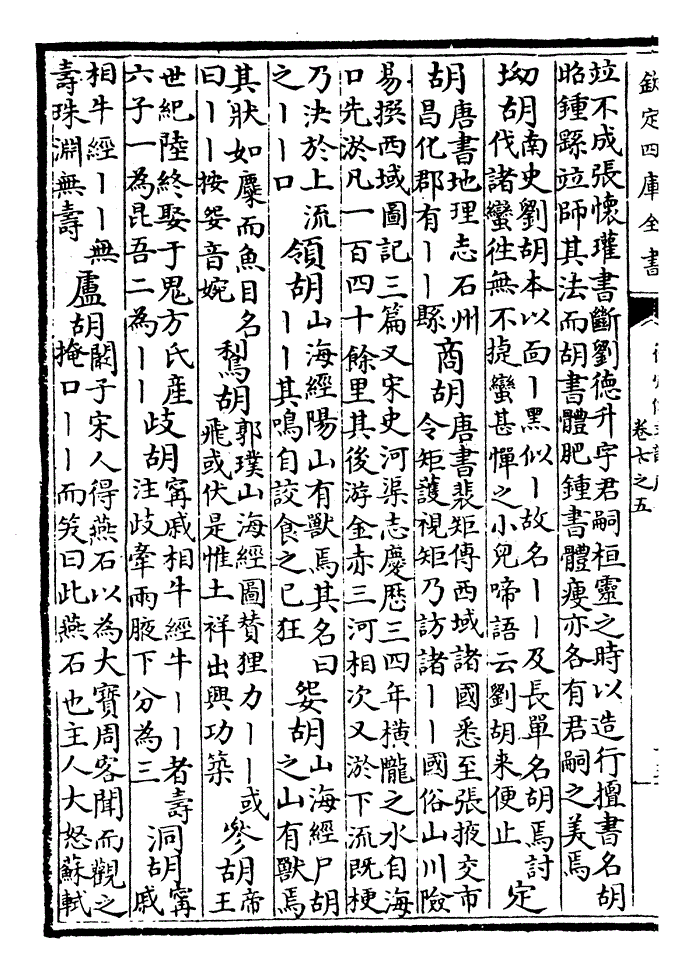 欽定四庫全書
卷七之五
竝不成張懷瓘書斷劉德升字君嗣桓靈之時以造行擅書名胡
昭鍾繇竝師其法而胡書體肥鍾書體瘦亦各有君嗣之美焉
坳胡南史劉胡本以面丨黑似丨故名丨丨及長單名胡焉討伐諸蠻徃無不捷蠻甚憚之小兒啼語云劉胡来便止定
胡唐書地理志石州昌化郡有丨丨縣商胡唐書裴矩傳西域諸國悉至張掖交市令矩護視矩乃訪諸丨丨國俗山川險
易撰西域圖記三篇又宋史河渠志慶厯三四年橫隴之水自海
口先淤凡一百四十餘里其後游金赤三河相次又淤下流既梗
乃決於上流之丨丨口領胡山海經陽山有獸焉其名曰丨丨其鳴自詨食之已狂妴胡山海經尸胡之山有獸焉
其狀如麋而魚目名曰丨丨按妴音婉鵹胡郭璞山海經圖賛狸力丨丨或飛或伏是惟土祥出興功築參胡帝王
世紀陸終娶于鬼方氏産六子一為昆吾二為丨丨歧胡甯戚相牛經牛丨丨者壽注歧牽兩腋下分為三洞胡甯戚
相牛經丨丨無壽珠淵無壽盧胡闞子宋人得燕石以為大寶周客聞而觀之掩口丨丨而笑曰此燕石也主人大怒蘇軾